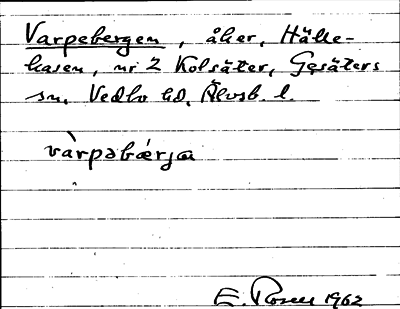 Varpebergen, åker, Hälle-
hasen, nr 2 Kolsäter, Gesäters
sn, Vedbo hd, Älvsb. l.
vàrpəbǽrja
E. Rosen 1962